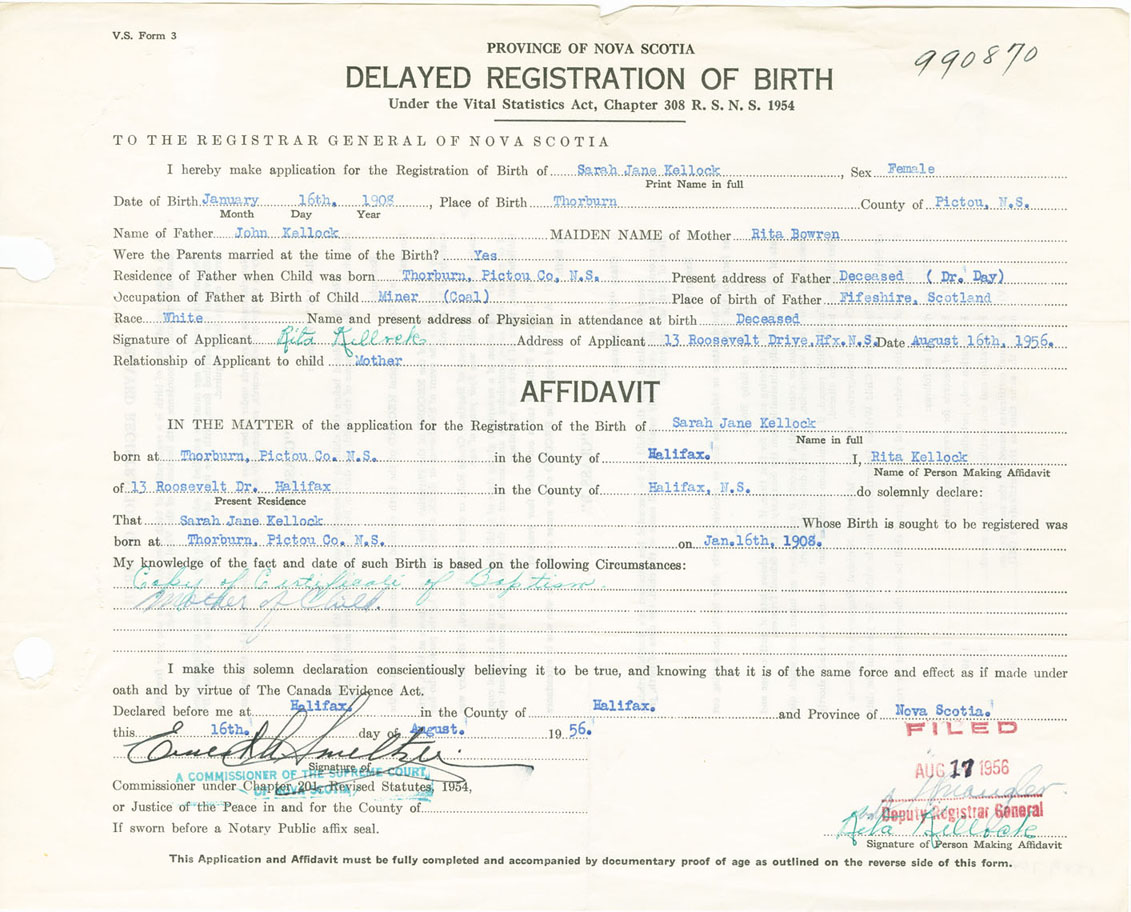 V.S. Form 3
990870
PROVINCE OF NOVA SCOTIA
DELAYED REGISTRATION OF BIRTH
Under the Vital Statistics Act, Chapter 308 R. S. N. S. 1954
TO THE REGISTRAR GENERAL OF NOVA SCOTIA
I hereby make application for the Registration of Birth of Sarah Jane Kellock, Sex Female
Print Name in full
Date of Birth January 16th, 1908, Place of Birth Thorburn County of Pictou, N.S.
Month Day Year
Name of Father John Kellock MAIDEN NAME of Mother Rita Bowren
Were the Parents married at the time of the Birth? Yes
Residence of Father when Child was born Thorburn, Pictou Co, N.S. Present address of Father Deceased ( Dr. Day)
Occupation of Father at Birth of Child Miner (Coal) Place of birth of Father Fifeshire, Scotland
Race White Name and present address of Physician in attendance at birth Deceased
Signature of Applicant Rita Killock Address of Applicant 13 Roosevelt Drive, Hfx. N.S. Date August 16th, 1956.
Relationship of Applicant to child Mother
AFFIDAVIT
IN THE MATTER of the application for the Registration of the Birth of Sarah Jane Kellock
Name in full
born at Thorburn, Pictou Co. N.S. in the County of Halifax. I, Rita Kellock
Name of Person Making Affidavit
of 13 Roosevelt Dr. Halifax in the County of Halifax, N.S. do solemnly declare:
Present Residence
That Sarah Jane Kellock Whose Birth is sought to be registered was
born at Thorburn, Pictou Co. N.S. on Jan.16th, 1908.
My knowledge of the fact and date of such Birth is based on the following Circumstances:
Copy of Certificate of Baptism.
Mother of Child.
I make this solemn declaration conscientiously believing it to be true, and knowing that it is of the same force and effect as if made under
oath and by virtue of The Canada Evidence Act.
Declared before me at Halifax. in the County of Halifax. and Province of Nova Scotia.
this 16th. day of August 19 56.
FILED
AUG 17 1956
Signature of
A COMMISSIONER OF THE SUPREME COURT
OF NOVA SCOTIA
Commissioner under Chapter 201, Revised Statutes, 1954,
or Justice of the Peace in and for the County of
Deputy Registrar General
If sworn before a Notary Public affix seal.
Rita Killock
Signature of Person Making Affidavit
This Application and Affidavit must be fully completed and accompanied by documentary proof of age as outlined on the reverse side of this form.